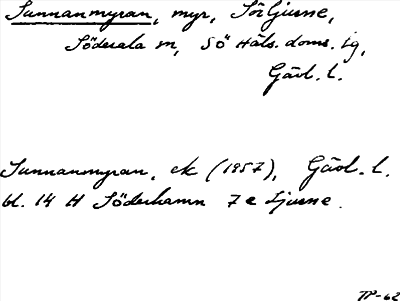 Sunnanmyran, myr, Sörljusne,
Söderala sn, SÖ Häls. doms. tg,
Gävl. l.
Sunnanmyran, ek (1957), Gävl. l.
bl. 14 H Söderhamn 7 e Ljusne.
TP-62